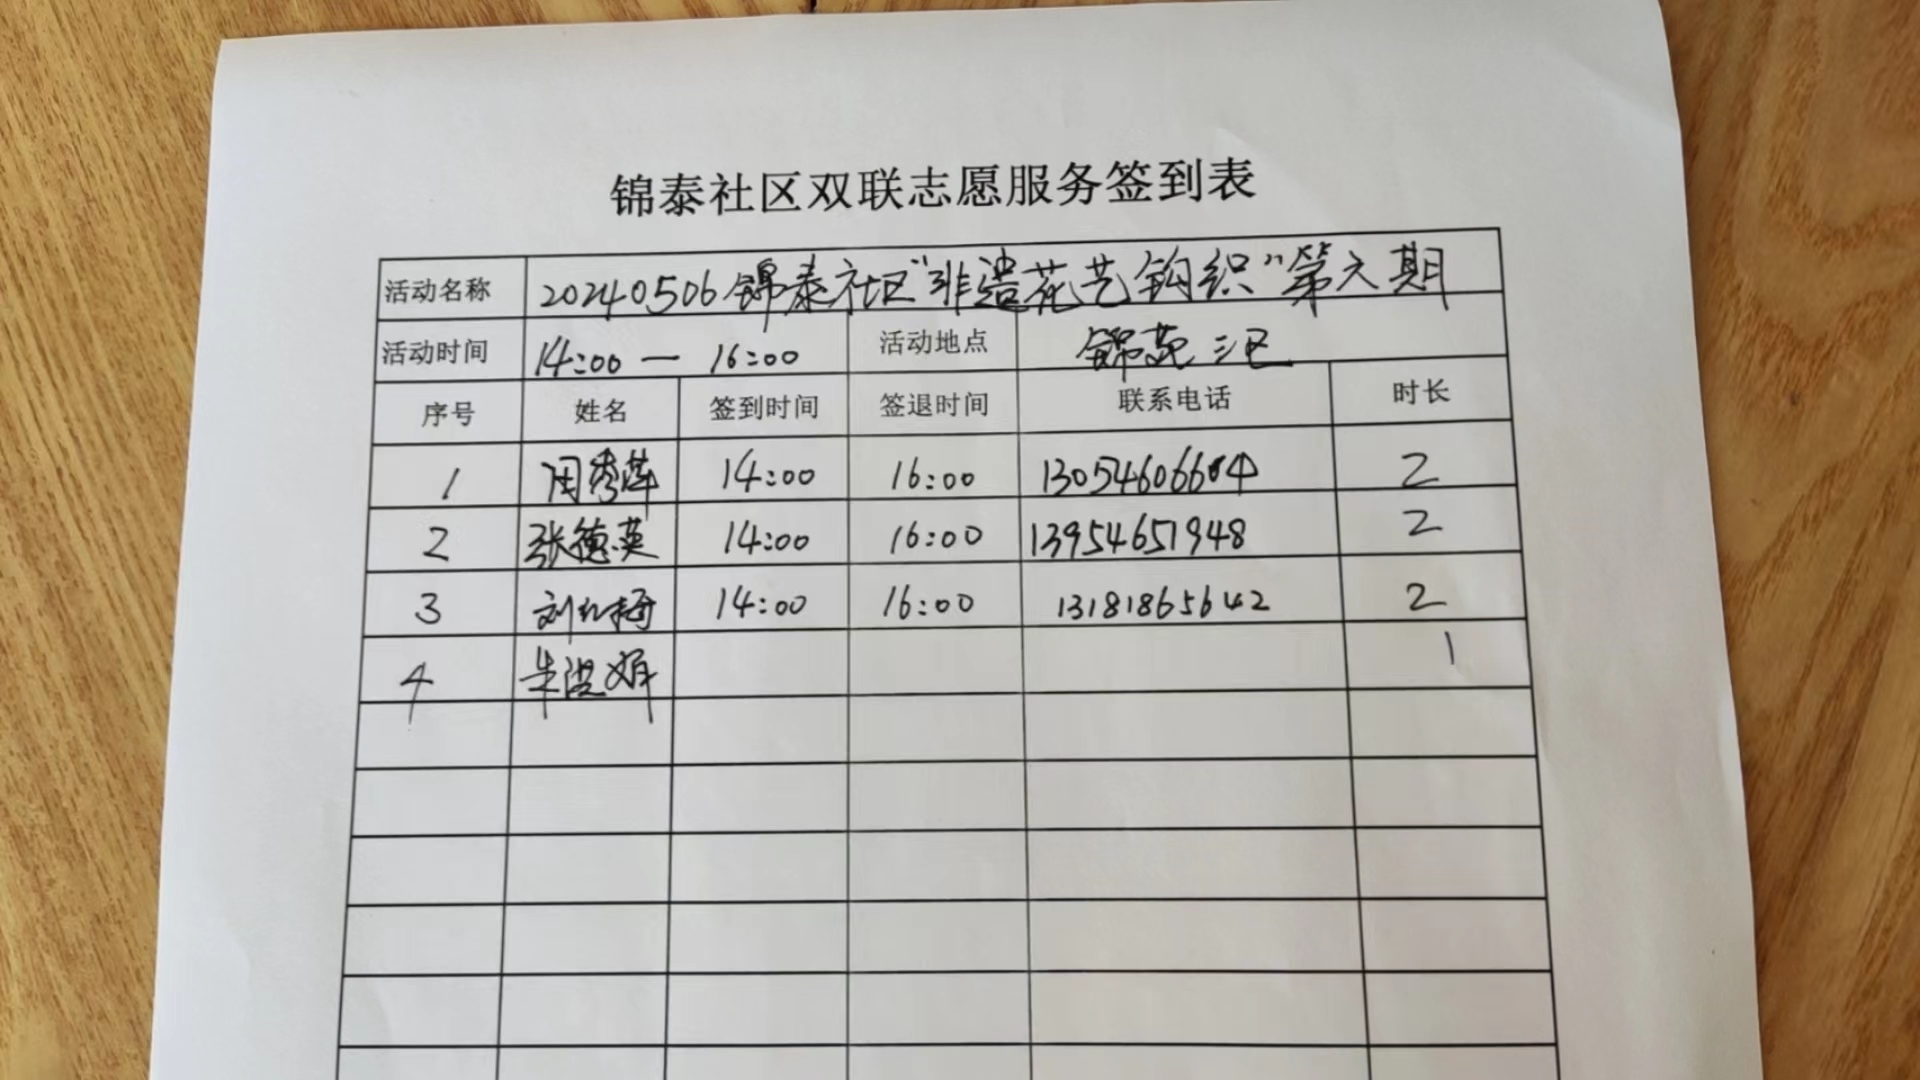 锦泰社区双联志愿服务签到表
活动名称 20240506锦泰社区“非遗花艺钩织”第六期
活动时间 14:00 — 16:00 活动地点 锦苑三区
序号 姓名 签到时间 签退时间 联系电话 时长
1 周秀萍 14:00 16:00 13054606604 2
2 张德英 14:00 16:00 13954651948 2
3 刘红梅 14:00 16:00 13181865642 2
4 朱洪娟 1